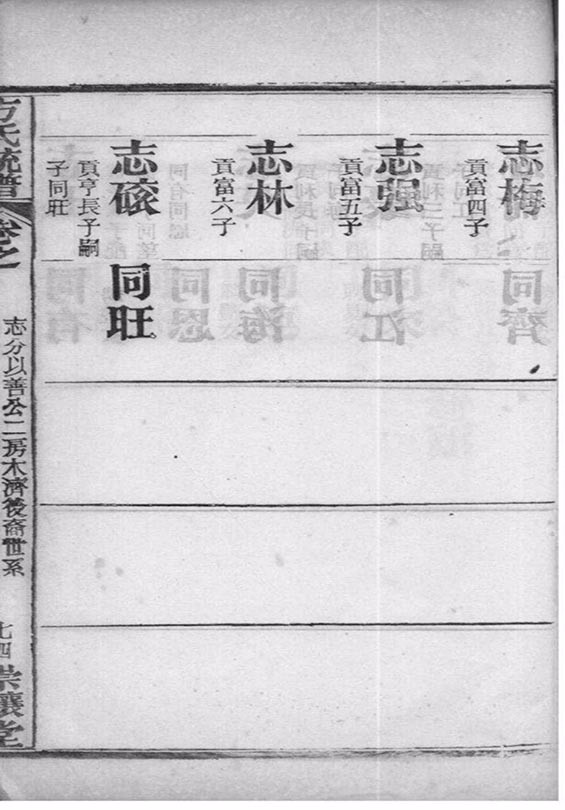 志梅
貢富四子
志强
貢富五子
志林
貢富六子
志磙
貢亨長子嗣
子同旺
同旺
方氏統譜
卷之
志分以善公二房木濟後裔世系
七四
崇讓堂